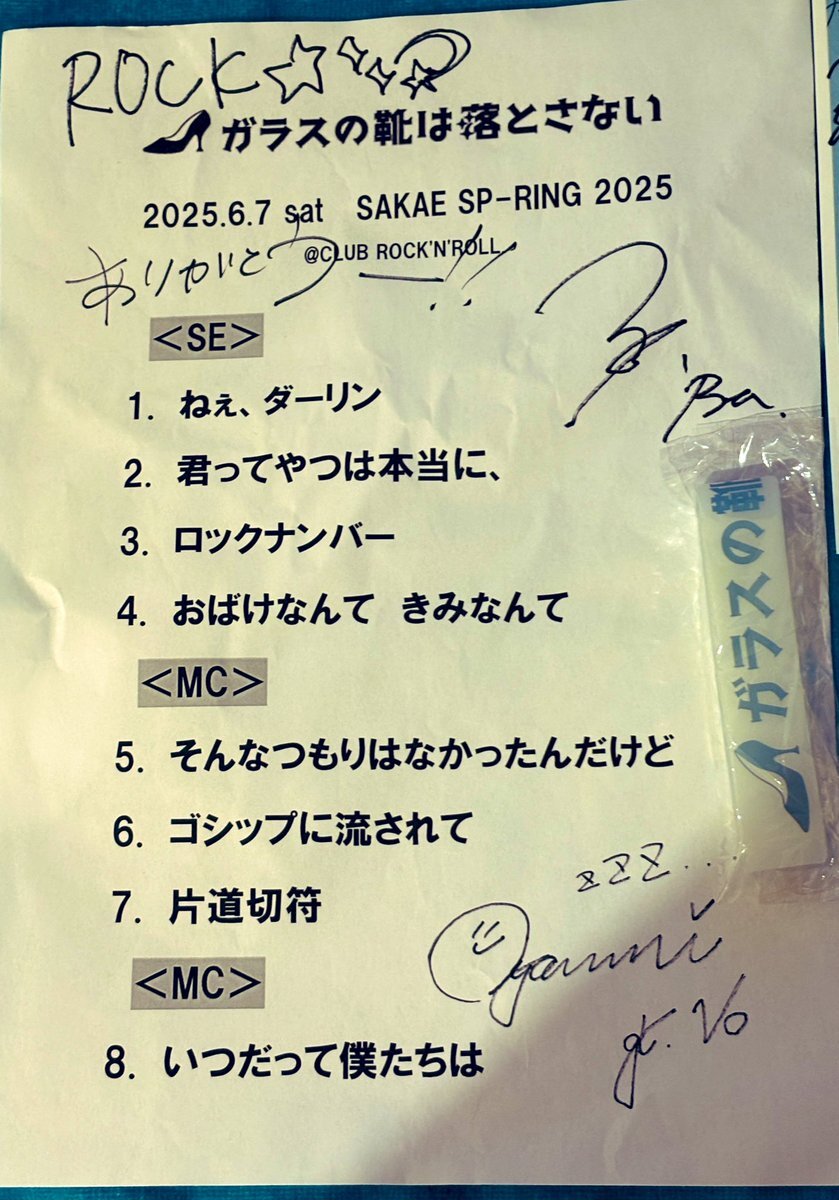 ROCK☆
ガラスの靴は落とさない
2025.6.7 sat SAKAE SP-RING 2025
@CLUB ROCK'N'ROLL
ありがとうー!!
<SE>
Ba.
1. ねぇ、ダーリン
2. 君ってやつは本当に、
3. ロックナンバー
4. おばけなんて きみなんて
<MC>
5. そんなつもりはなかったんだけど
6. ゴシップに流されて
7. 片道切符
<MC>
8. いつだって僕たちは
ガラスの靴
zzz...
gt. Vo